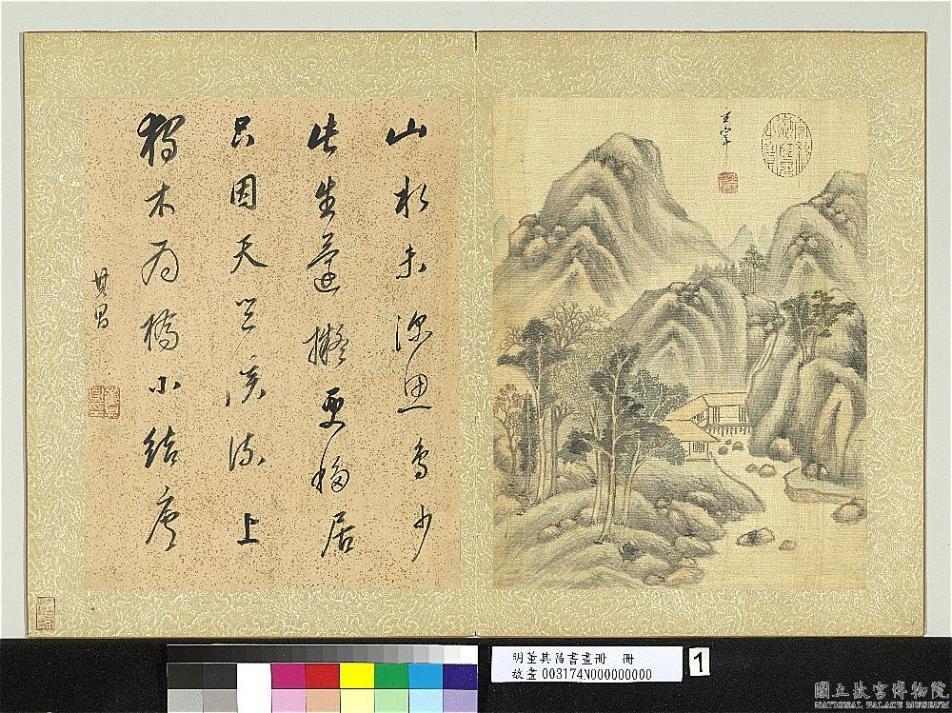 玄宰
山林未深魚鳥少
此生還擬更移居
只因天台溪流上
獨木為橋小結廬
其昌
明董其昌書畫冊 冊
故畫003174N000000000
1
國立故宮博物院
NATIONAL PALACE MUSEUM